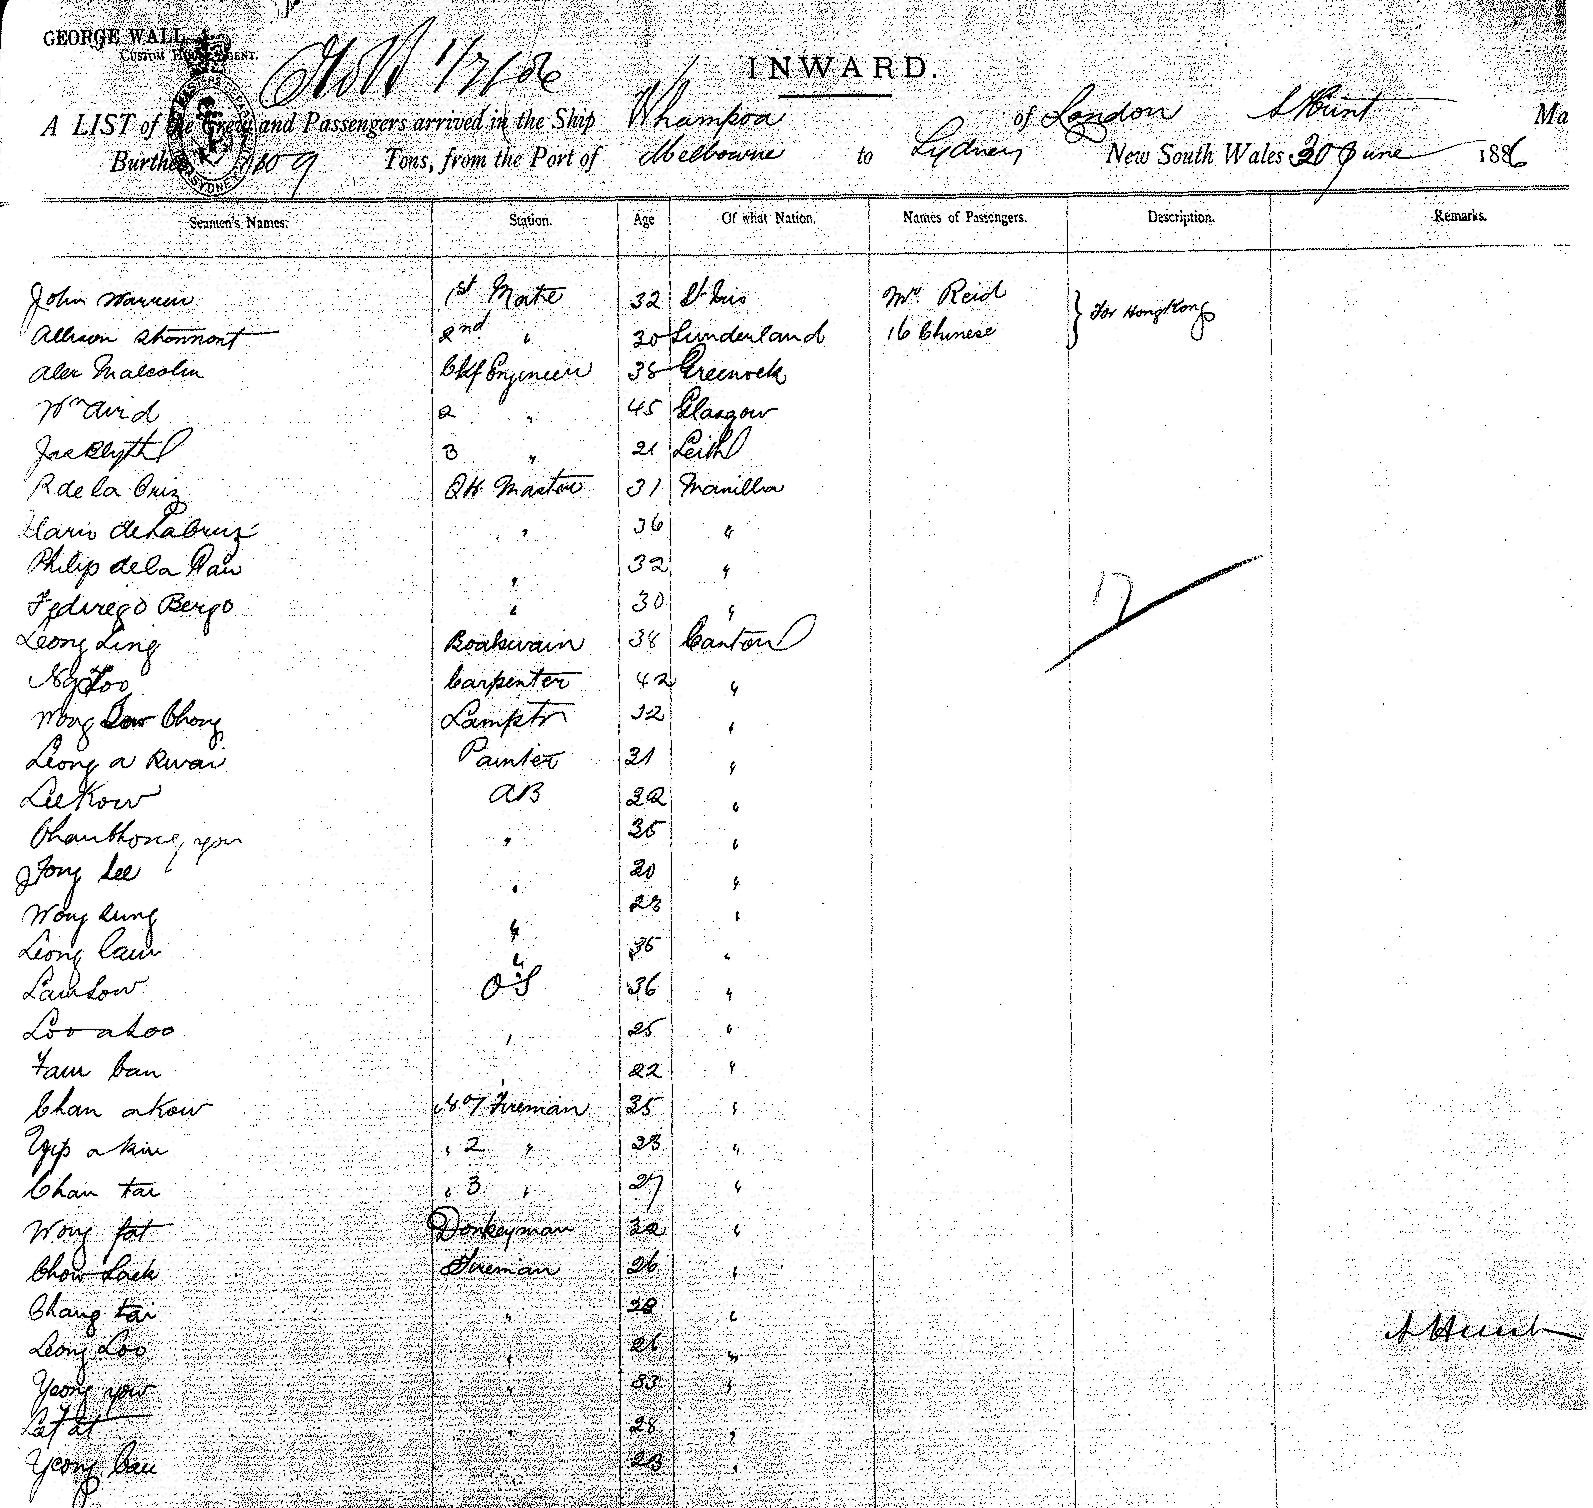 GEORGE WALL
CUSTOM HOUSE AGENT.
INWARD.
A LIST of the Crew and Passengers arrived in the Ship Whampoa of London A Hunt Ma
Burthen 1109 Tons, from the Port of Melbourne to Sydney New South Wales 30 June 1886
Seamen's Names. Station. Age Of what Nation. Names of Passengers. Description. Remarks.
John Warren 1st Mate 32 St Ives Mr Reid } For HongKong
Allison 2nd " 30 Sunderland 16 Chinese
Alex Malcolm Chf Engineer 38 Greenock
Wm Aird 2 " 45 Glasgow
Jas Blyth 3 " 21 Leith
R de la Cruz Qr Master 31 Manilla
Ilario de La Cruz " 36 "
Philip de la " 32 "
Bergo " 30 "
Leong Ling Boatswain 38 Canton
Ng Foo Carpenter 42 "
Wong Chong Lamptr 32 "
Leong a Kwai Painter 31 "
Lee Kow AB 22 "
Chan Chong you " 35 "
Fong Lee " 20 "
Wong Sung " 28 "
Leong Cam " 35 "
Lam Sow OS 36 "
Loo a Loo " 25 "
Fam Can " 22 "
Chan a Kow No 1 Fireman 35 "
Yip a Kin " 2 " 28 "
Chan Tai " 3 " 27 "
Wong fat Donkeyman 32 "
Chow Lack Fireman 26 "
Chang Tai " 28 "
Leong Loo " 26 "
Yeong yow " 33 "
" 28 "
Yeong Cau 28 "
17
A Hunt